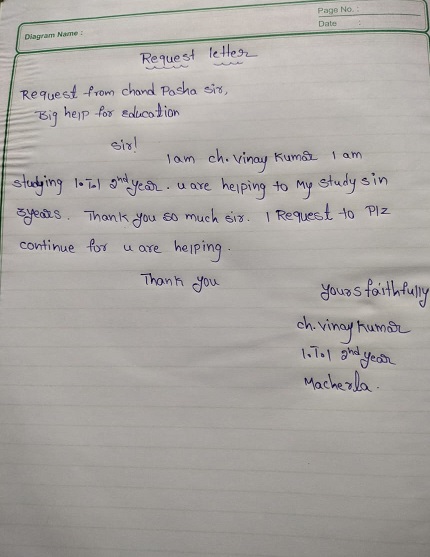 Page No. :
Date :
Diagram Name :
Request letter
Request from chand Pasha sir,
Big help for education
Sir!
I am ch. Vinay Kumar I am
studying I.T.I 2nd year. u are helping to My study s in
3years. Thank you so much sir. I Request to Plz
continue for u are helping.
Thank you
yours faithfully
ch. vinay kumar
I.T.I 2nd year
Macherla.